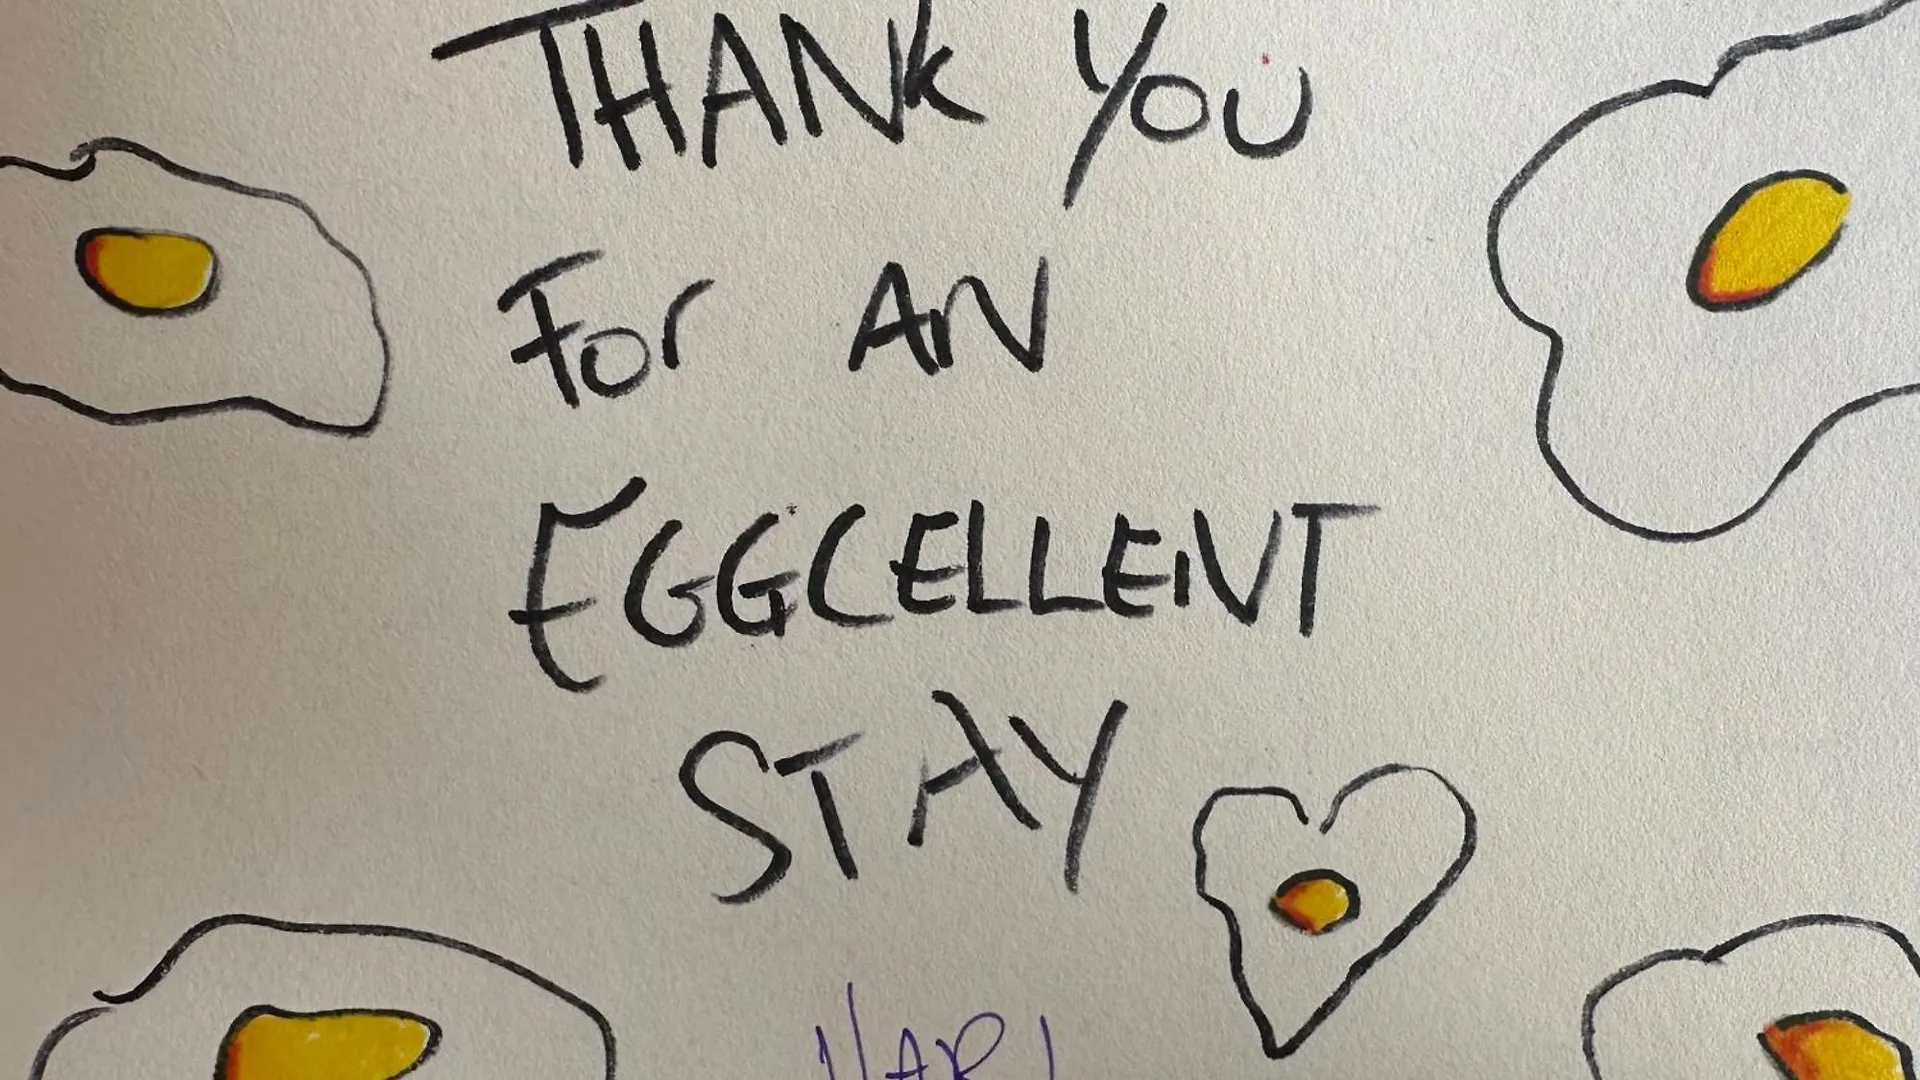 THANK YOU
FOR AN
EGGCELLENT
STAY